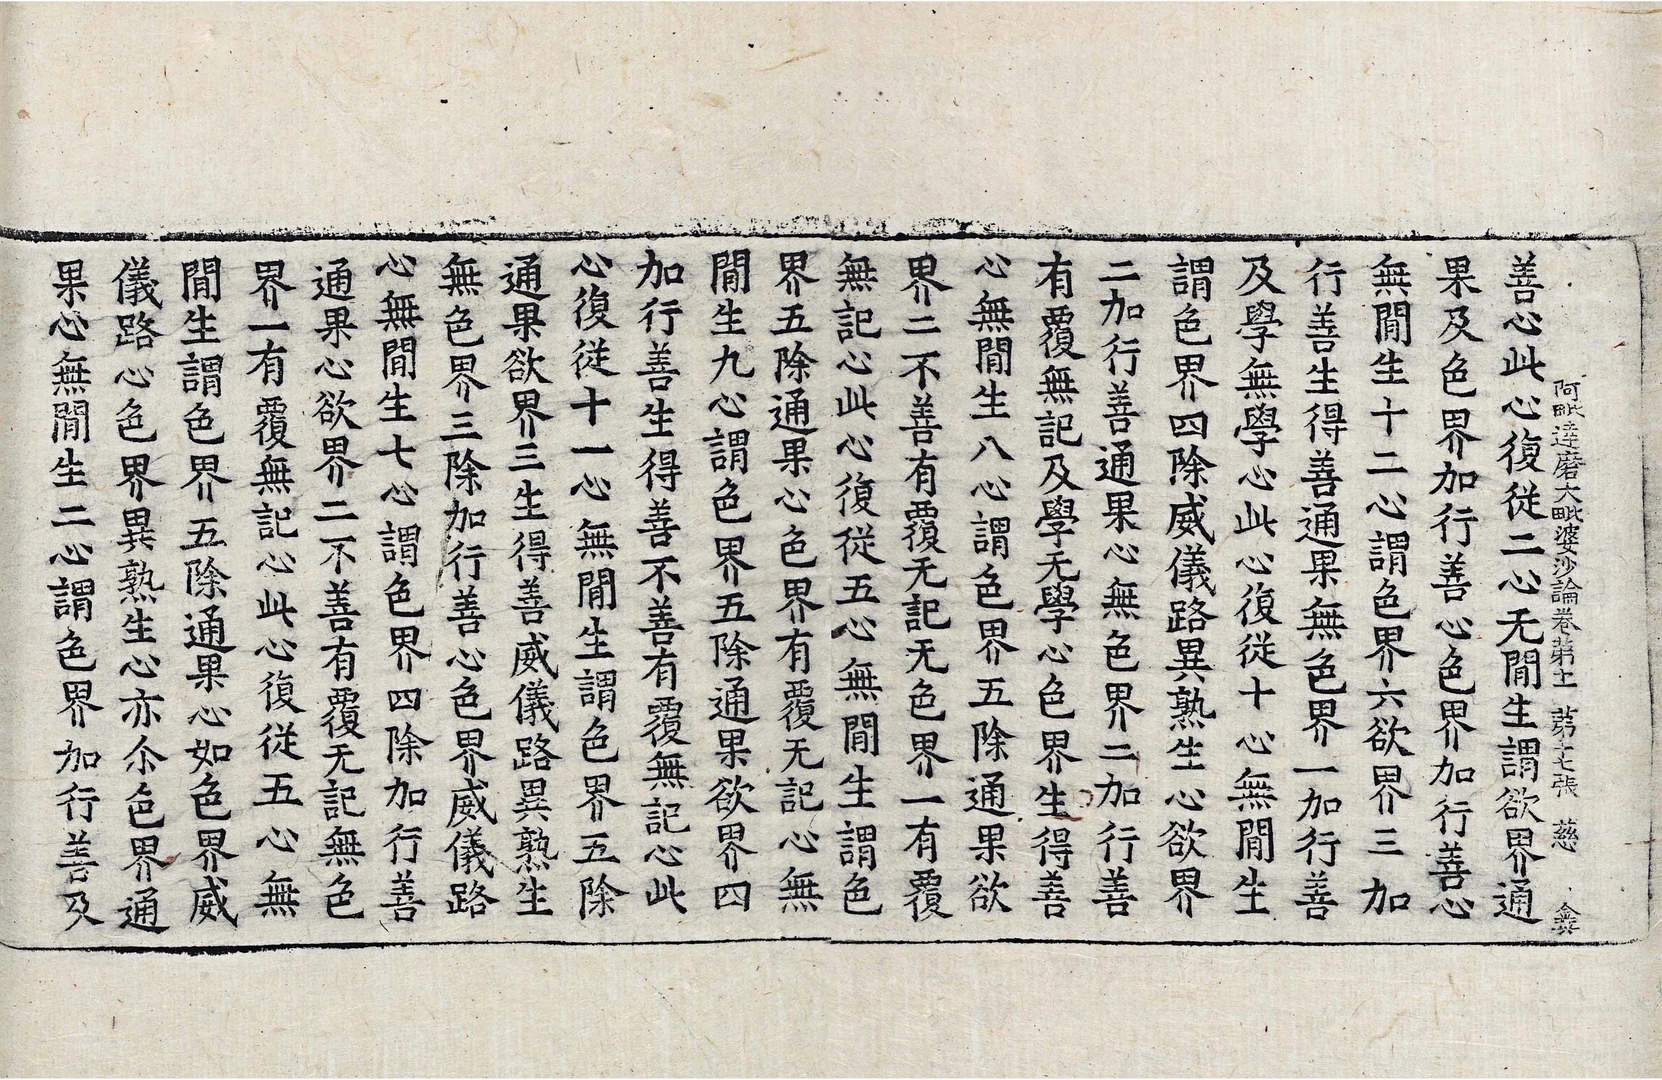 阿毗達磨大毗婆沙論卷第十一 苐十七張 慈
善心此心復從二心无閒生謂欲界通
果及色界加行善心色界加行善心
無閒生十二心謂色界六欲界三加
行善生得善通果無色界一加行善
及學無學心此心復從十心無閒生
謂色界四除威儀路異熟生心欲界
二加行善通果心無色界二加行善
有覆無記及學无學心色界生得善
心無閒生八心謂色界五除通果欲
界二不善有覆无記无色界一有覆
無記心此心復從五心無閒生謂色
界五除通果心色界有覆无記心無
閒生九心謂色界五除通果欲界四
加行善生得善不善有覆無記心此
心復從十一心無閒生謂色界五除
通果欲界三生得善威儀路異熟生
無色界三除加行善心色界威儀路
心無閒生七心謂色界四除加行善
通果心欲界二不善有覆无記無色
界一有覆無記心此心復從五心無
閒生謂色界五除通果心如色界威
儀路心色界異熟生心亦尒色界通
果心無閒生二心謂色界加行善及